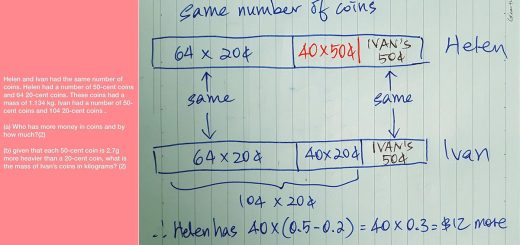 Helen and Ivan had the same number of
coins. Helen had a number of 50-cent coins
and 64 20-cent coins. These coins had a
mass of 1.134 kg. Ivan had a number of 50-
cent coins and 104 20-cent coins .
(a) Who has more money in coins and by
how much?(2)
(b) given that each 50-cent coin is 2.7g
more heavier than a 20-cent coin, what is
the mass of Ivan's coins in kilograms? (2)
same number of coins
64 x 20¢ 40x50¢ IVAN'S 50¢ Helen
same same
64 x 20¢ 40x20¢ IVAN'S 50¢ Ivan
104 x 20¢
∴ Helen has 40x(0.5-0.2) = 40x0.3 = $12 more